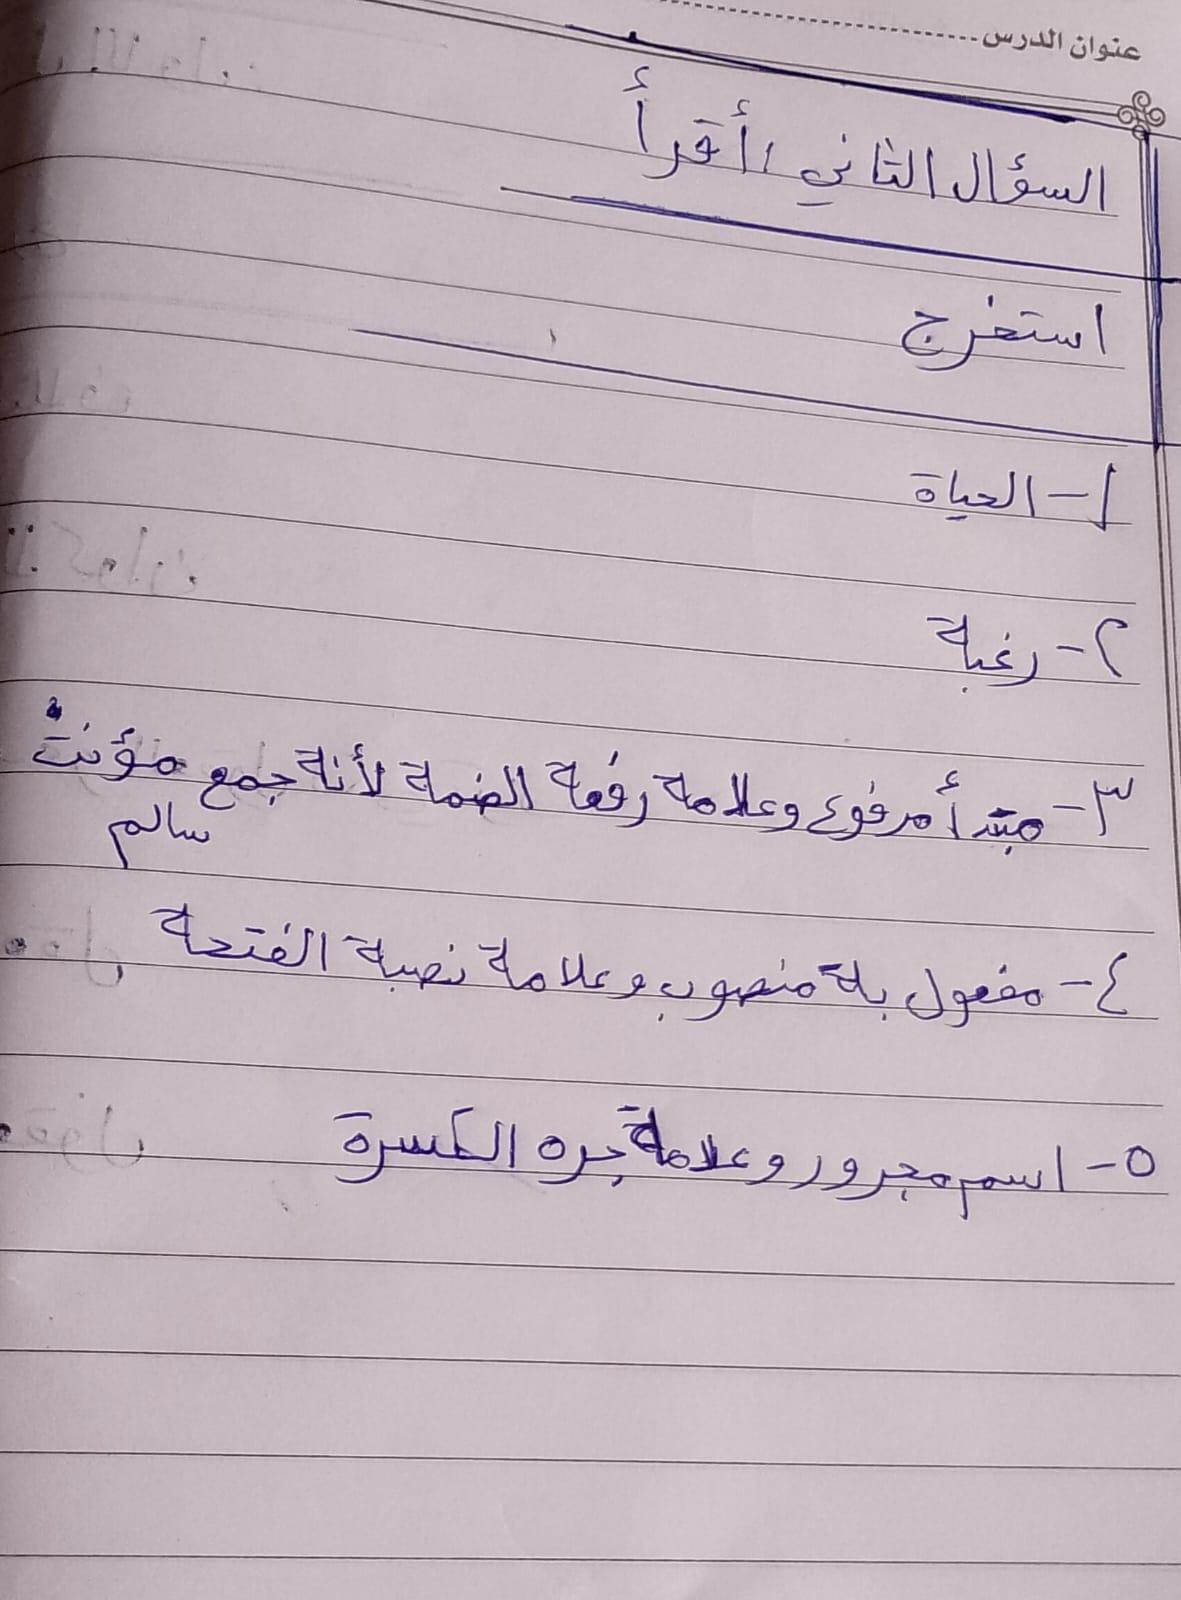 عنوان الدرس
السؤال الثاني / أقرأ
استخرج
١- الحياة
٢- رغبة
٣- مبتدأ مرفوع وعلامة رفعة الضمة لأنة جمع مؤنث
سالم
٤- مفعول بة منصوب وعلامة نصبة الفتحة
٥- اسم مجرور وعلامة جره الكسرة